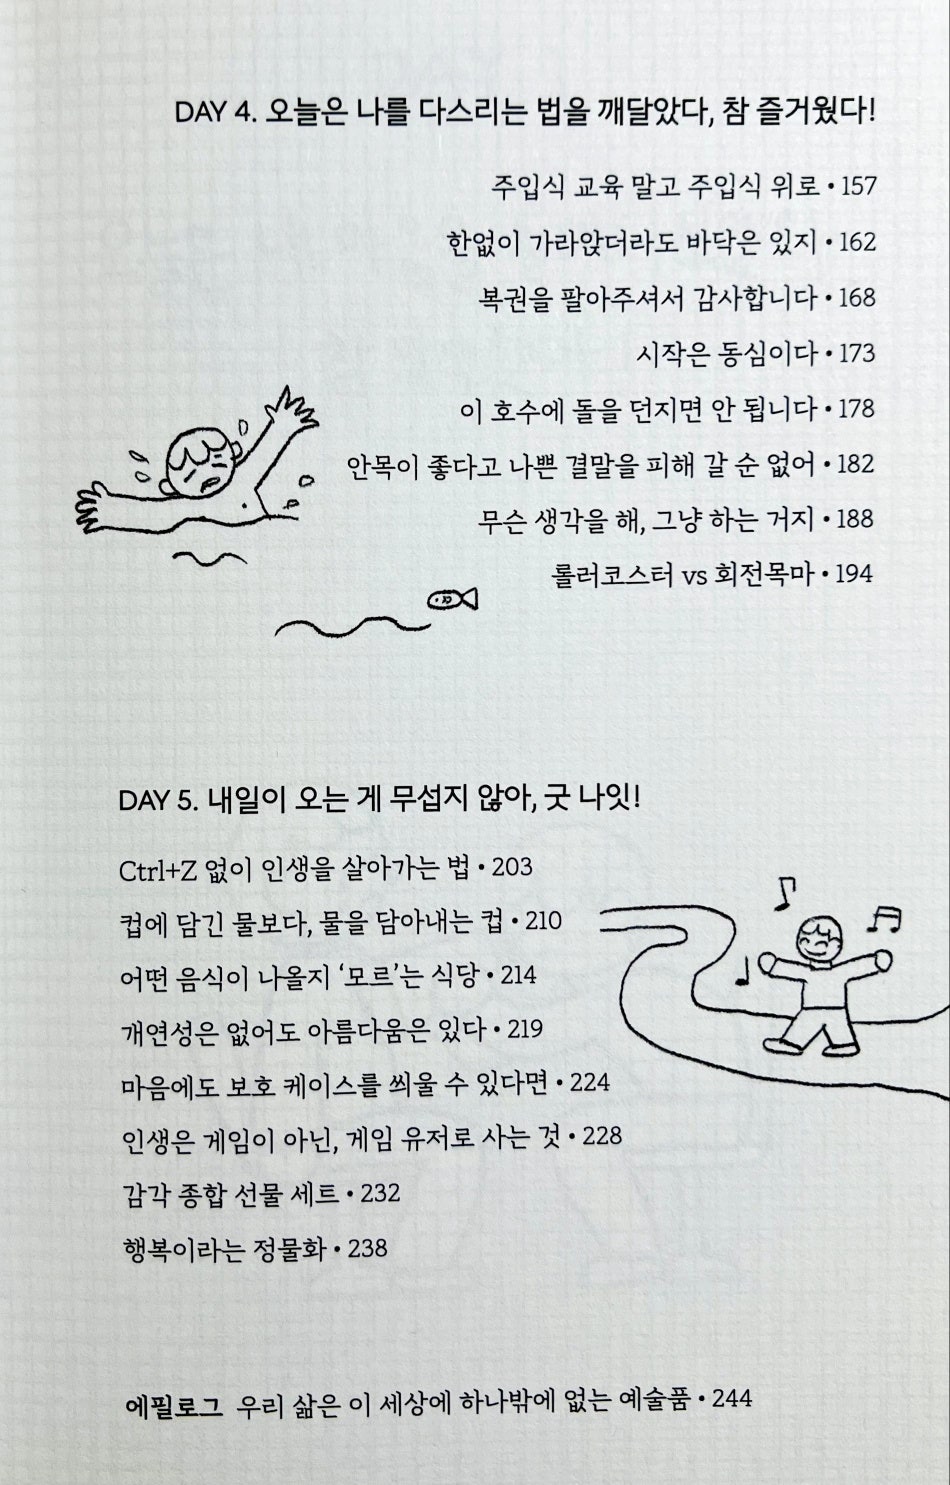 DAY 4. 오늘은 나를 다스리는 법을 깨달았다, 참 즐거웠다!
주입식 교육 말고 주입식 위로 • 157
한없이 가라앉더라도 바닥은 있지 • 162
복권을 팔아주셔서 감사합니다 • 168
시작은 동심이다 • 173
이 호수에 돌을 던지면 안 됩니다 • 178
안목이 좋다고 나쁜 결말을 피해 갈 순 없어 • 182
무슨 생각을 해, 그냥 하는 거지 • 188
롤러코스터 vs 회전목마 • 194
DAY 5. 내일이 오는 게 무섭지 않아, 굿 나잇!
Ctrl+Z 없이 인생을 살아가는 법 • 203
컵에 담긴 물보다, 물을 담아내는 컵 • 210
어떤 음식이 나올지 ‘모르’는 식당 • 214
개연성은 없어도 아름다움은 있다 • 219
마음에도 보호 케이스를 씌울 수 있다면 • 224
인생은 게임이 아닌, 게임 유저로 사는 것 • 228
감각 종합 선물 세트 • 232
행복이라는 정물화 • 238
에필로그 우리 삶은 이 세상에 하나밖에 없는 예술품 • 244